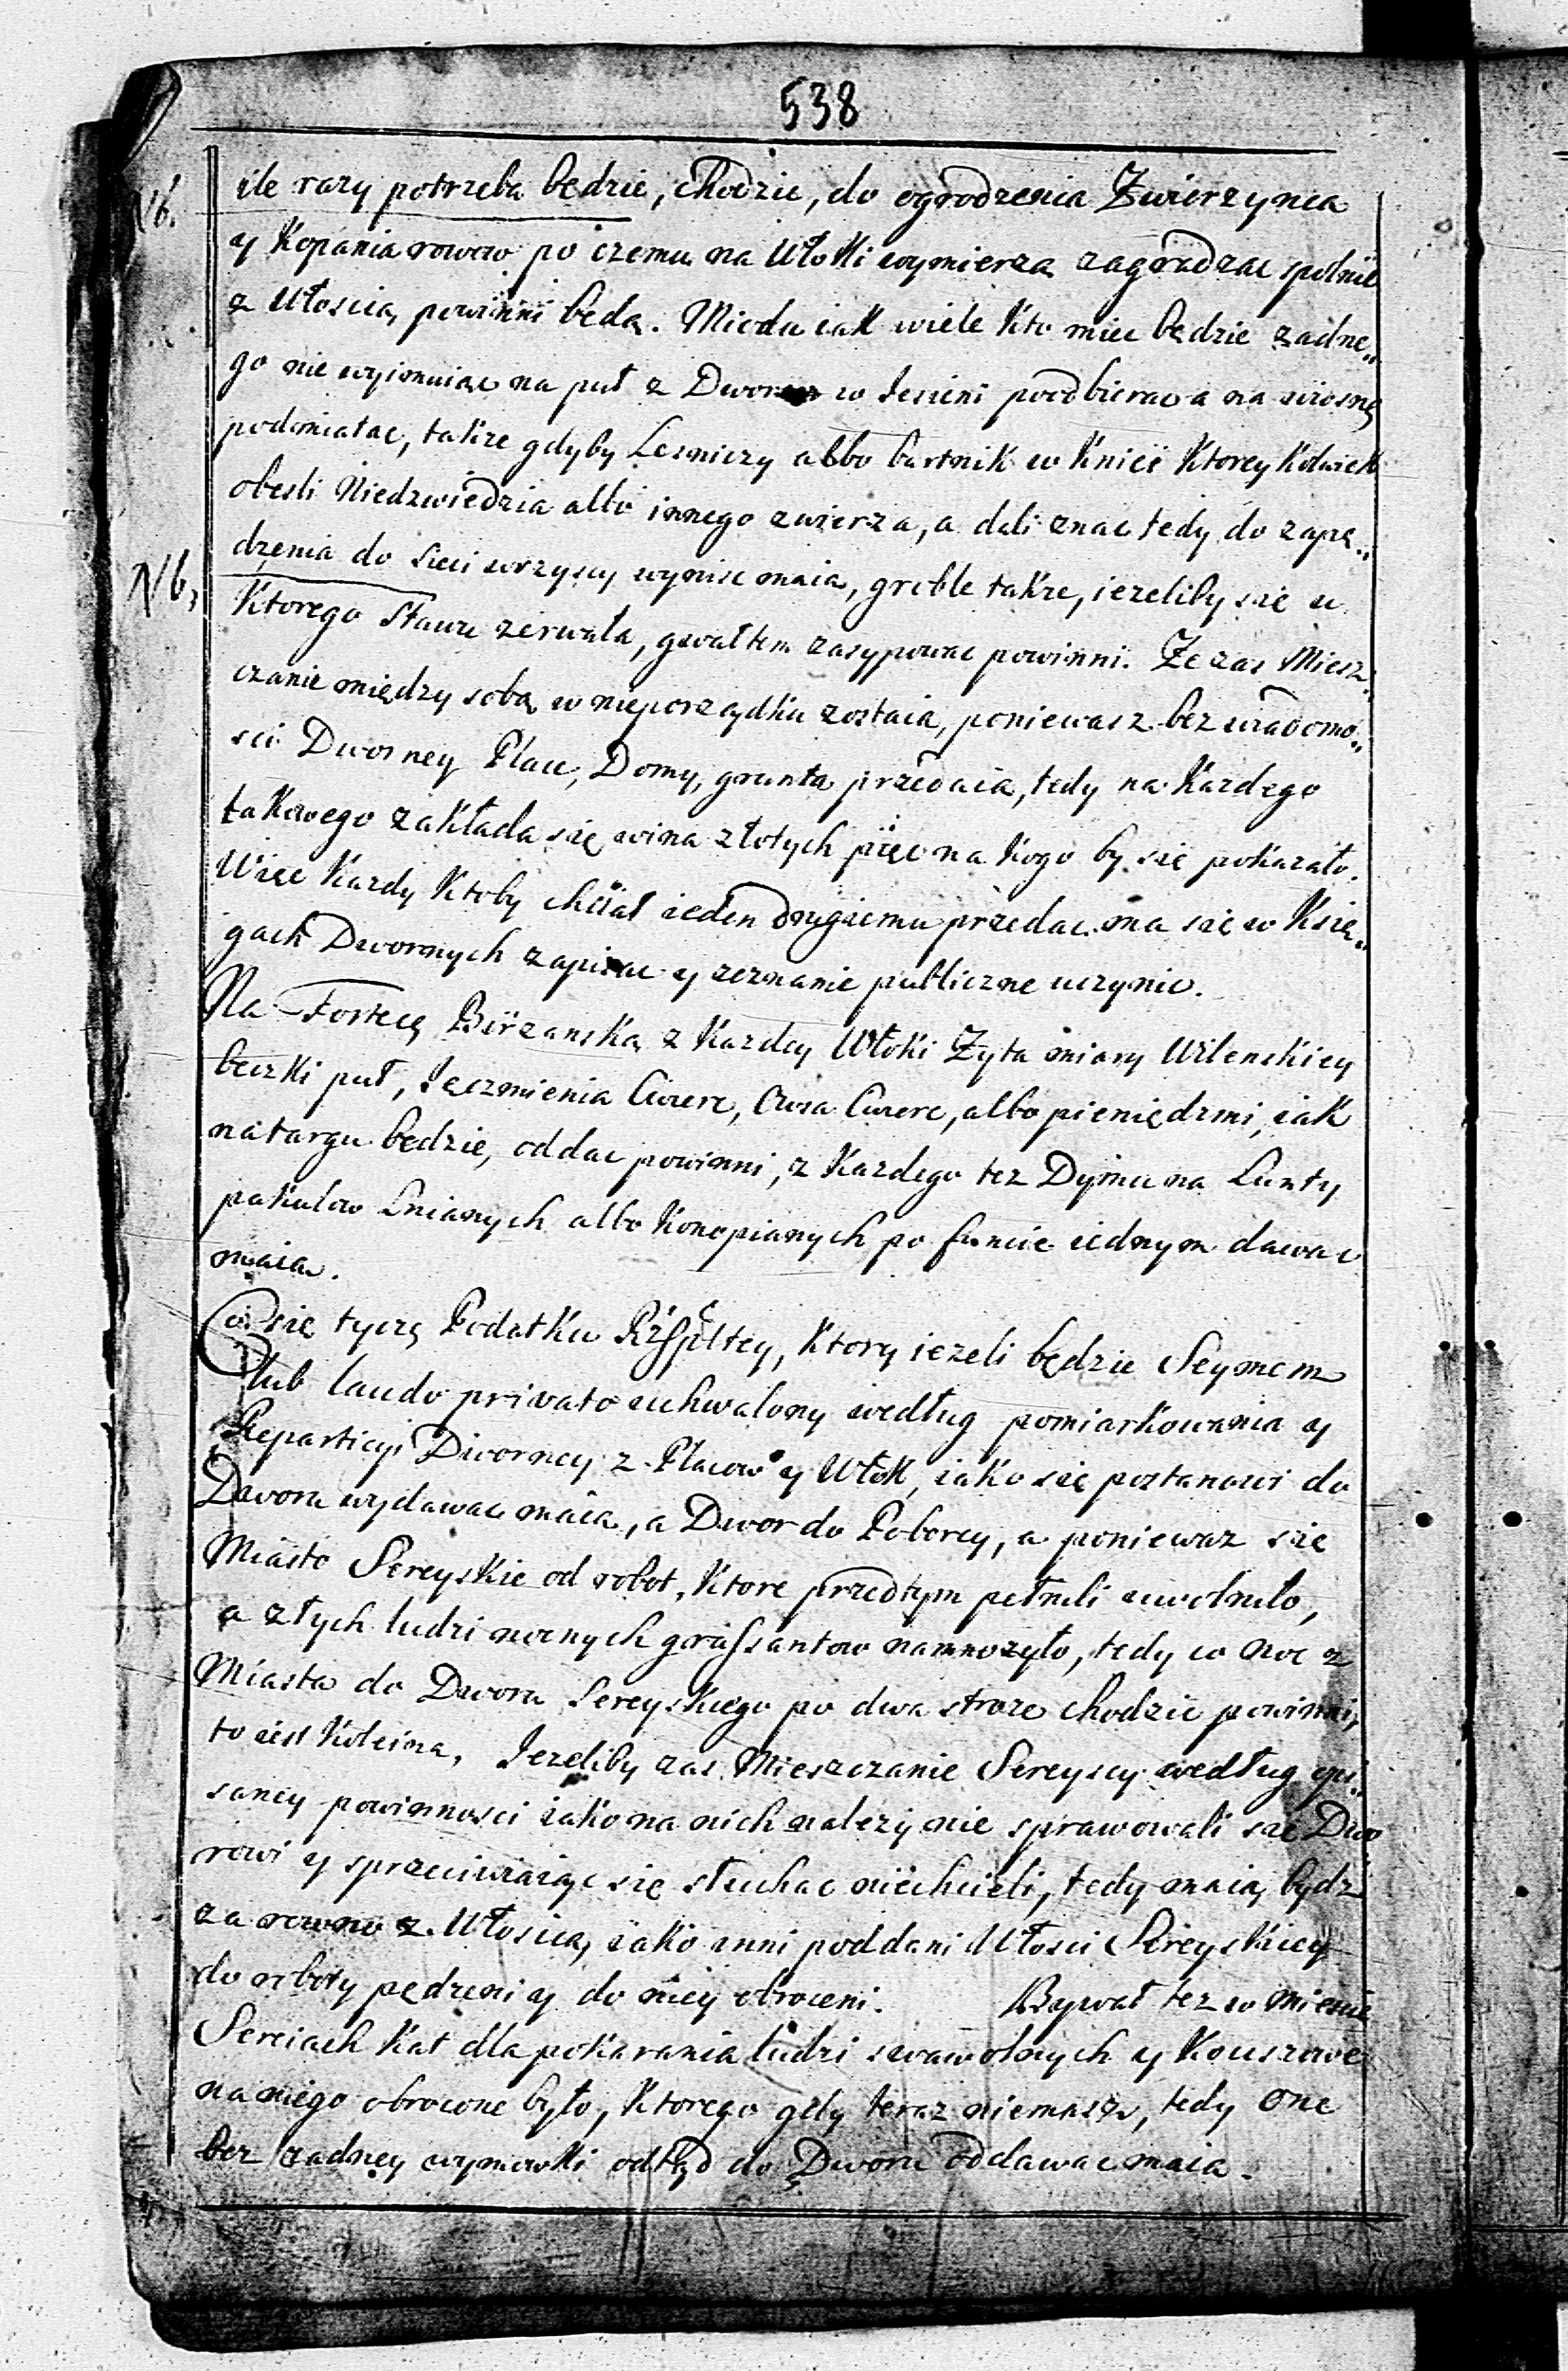 538
Nb. ile razy potrzeba będzie, chodzic, do ogrodzenia Zwierzynca
y Kopania rowow po czemu na Włoki wymierzą zagradzac spolnie
z Włoscią, powinni będą. Miodu iak wiele Kto miec będzie zadne„
go nie wyimuiąc na puł z Dworem w Iesieni poodbierac a na wiosnę
podmiatac, takze gdyby Lesniczy albo bartnik w Kniei Ktorey Kolwiek
obesli Niedzwiedzia albo innego zwierza, a dali znac tedy do zapę„
Nb, dzenia do sieci wszyscy wynisc maią, groble takze, iezeliby się u
Ktorego Stawu zerwała, gwałtem zasypowac powinni. Ze zas Miesz„
czanie między sobą w nieporządku zostaią, poniewasz bez wiadomo„
sci Dworney Place, Domy, grunta przedaią, tedy na Kazdego
takowego zakłada się wina złotych pięc na Kogo by się pokazało.
Więc Kazdy Ktoby chciał ieden drugiemu przedac ma się w Kśię„
gach Dwornych zapisac y zeznanie publiczne uczynic.
Na Fortecę Birzanską z Kazdey Włoki Zyta miary Wilenskiey
beczki puł, Ięczmienia Cwierc, Owsa Cwierc, albo pieniędzmi, iak
na targu będzie, oddac powinni, z Kazdego tez Dymu na Lunty
pakułow Lnianych albo Konopianych po funcie iednym dawac
maią.
Co się tyczę Podatku Rzspltey, Ktory iezeli będzie Seymem
lub laudo privato uchwalony według pomiarkowania y
Reparticyi Dworney z Placow y Włok, iako się postanowi do
Dworu wydawac maią, a Dwor do Poborcy, a poniewaz się
Miasto Sereyskie od robot, Ktore przedtym pełnili uwolniło,
a złych ludzi nocnych grassantow namnozyło, tedy co noc z
Miasta do Dworu Sereyskiego po dwa stroze chodzic powinni,
to iest Koleiną, Iezeliby zas Mieszczanie Sereyscy według opi„
saney powinnosci iako na nich nalezy nie sprawowali się Dwo
rowi y sprzeciwiaiąc się słuchac niechcieli, tedy maią bydz
za rowno z Włoscią, iako inni poddani Włosci Sereyskiey
do roboty pędzeni y do niey obroceni. Bywał tez w Miescie
Sereiach Kat dla pokarania ludzi swawolnych y Kouszowe
na niego obrocone było, Ktorego gdy teraz niemasz, tedy one
bez zadney wymowki odtąd do Dworu oddawac maią.